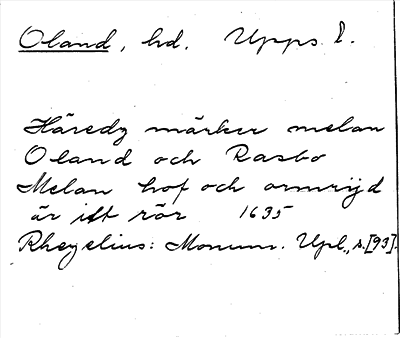 Oland, hd. Upps. l.
Häredz märker melan
Oland och Rasbo
Melan hof och ormrijd
är itt rör 1635
Rhezelius: Monum. Upl., s. [93].